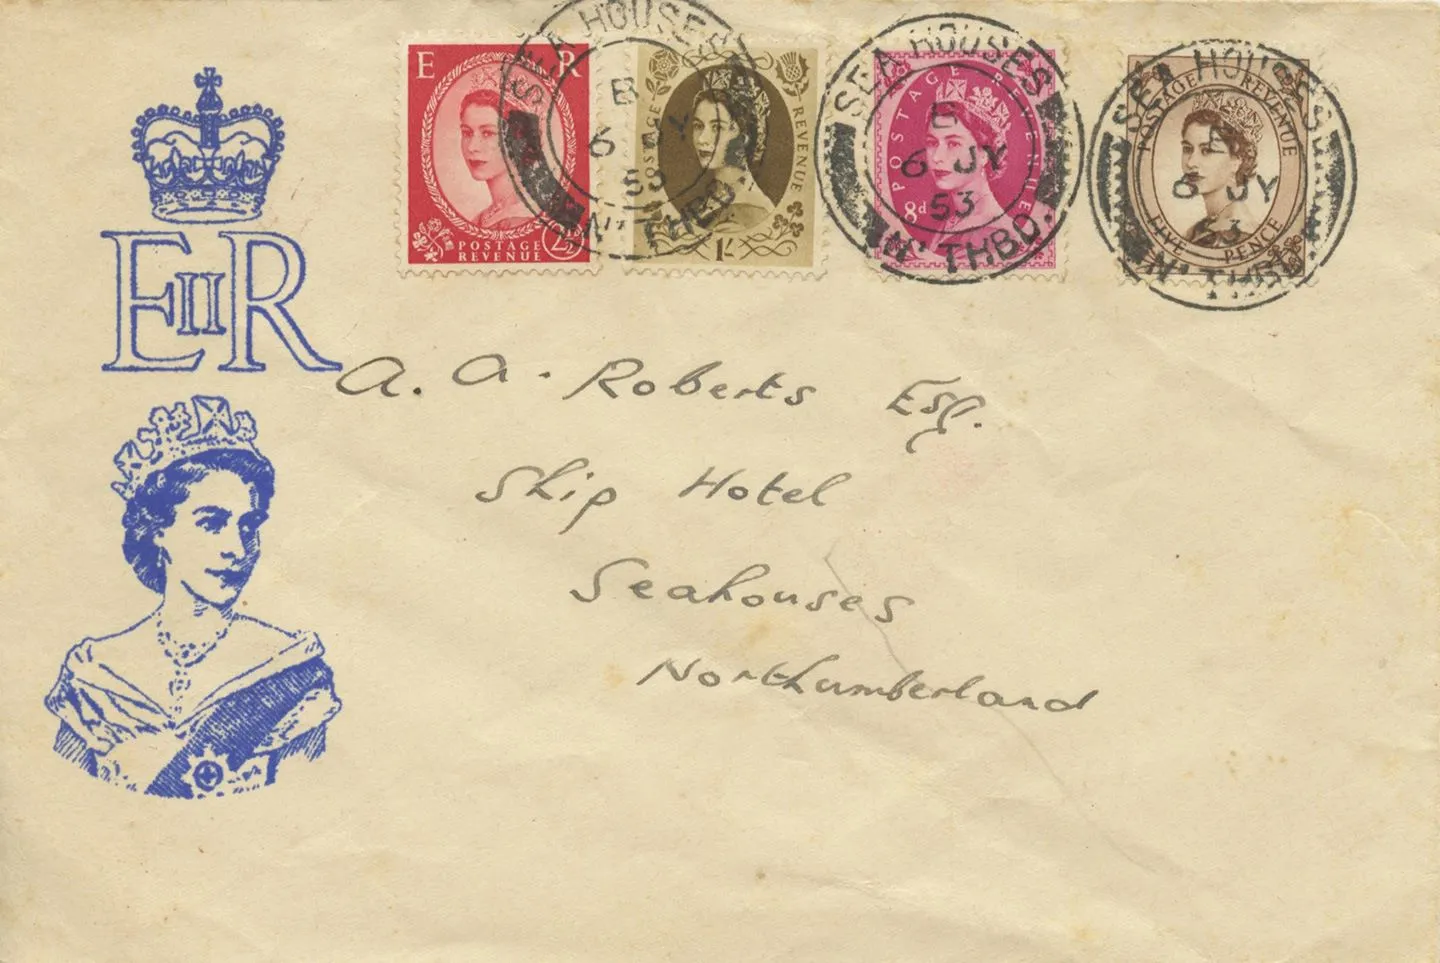 E R
POSTAGE
REVENUE 2½
POSTAGE REVENUE
1/-
POSTAGE REVENUE
8d
POSTAGE REVENUE
FIVE PENCE
SEA HOUSES
E
6 JY
53
NTHBD.
SEA HOUSES
E
6 JY
53
NTHBD.
SEA HOUSES
E
6 JY
53
NTHBD.
EIIR
A. A. Roberts Esq.
Ship Hotel
Seahouses
Northumberland